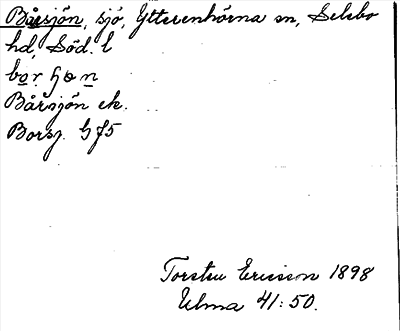 Bårsjön, sjö, Ytterenhörna sn, Selebo
hd, Söd. l
Bårsjön ek.
Borsj. G f5
Torsten Ericsson 1898
Ulma 41:50.